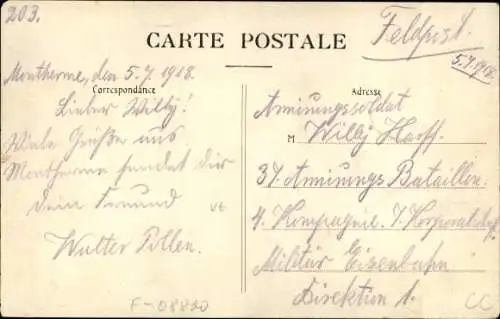 203.
CARTE POSTALE
Feldpost.
5.7.1918.
Montherme, den 5.7.1918.
Correspondance
Lieber Willy!
Viele Grüße aus
Montherme sendet dir
dein Freund
Walter Pollen.
Adresse
Armirungssoldat
M Willy Harff.
37. Armirungs Bataillon.
4. Kompagnie. 7. Korporalschaf
Militär Eisenbahn
Direktion 1.
F-08800
CC